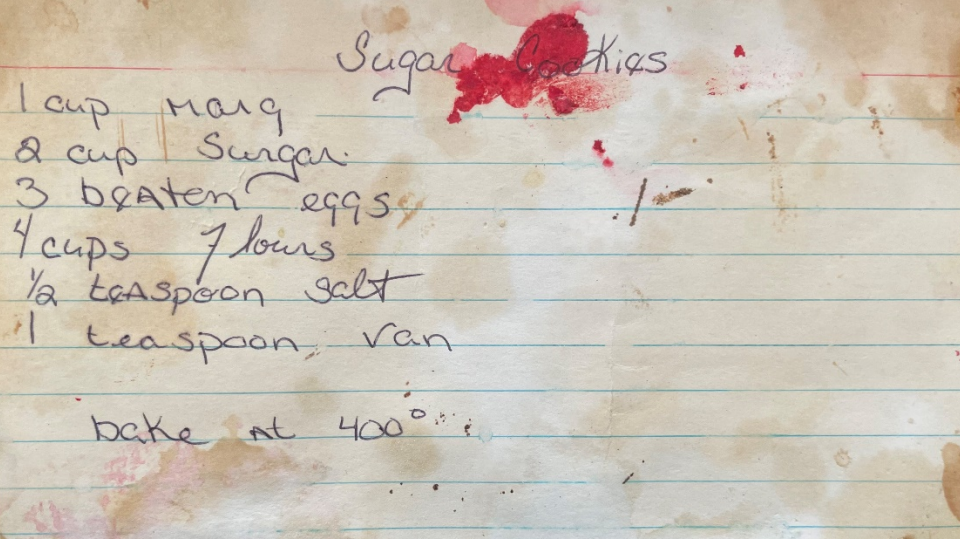 Sugar Cookies
1 cup Marg
2 cup Surgar.
3 beaten eggs
4 cups flours
1/2 teaspoon salt
1 teaspoon Van
bake At 400°